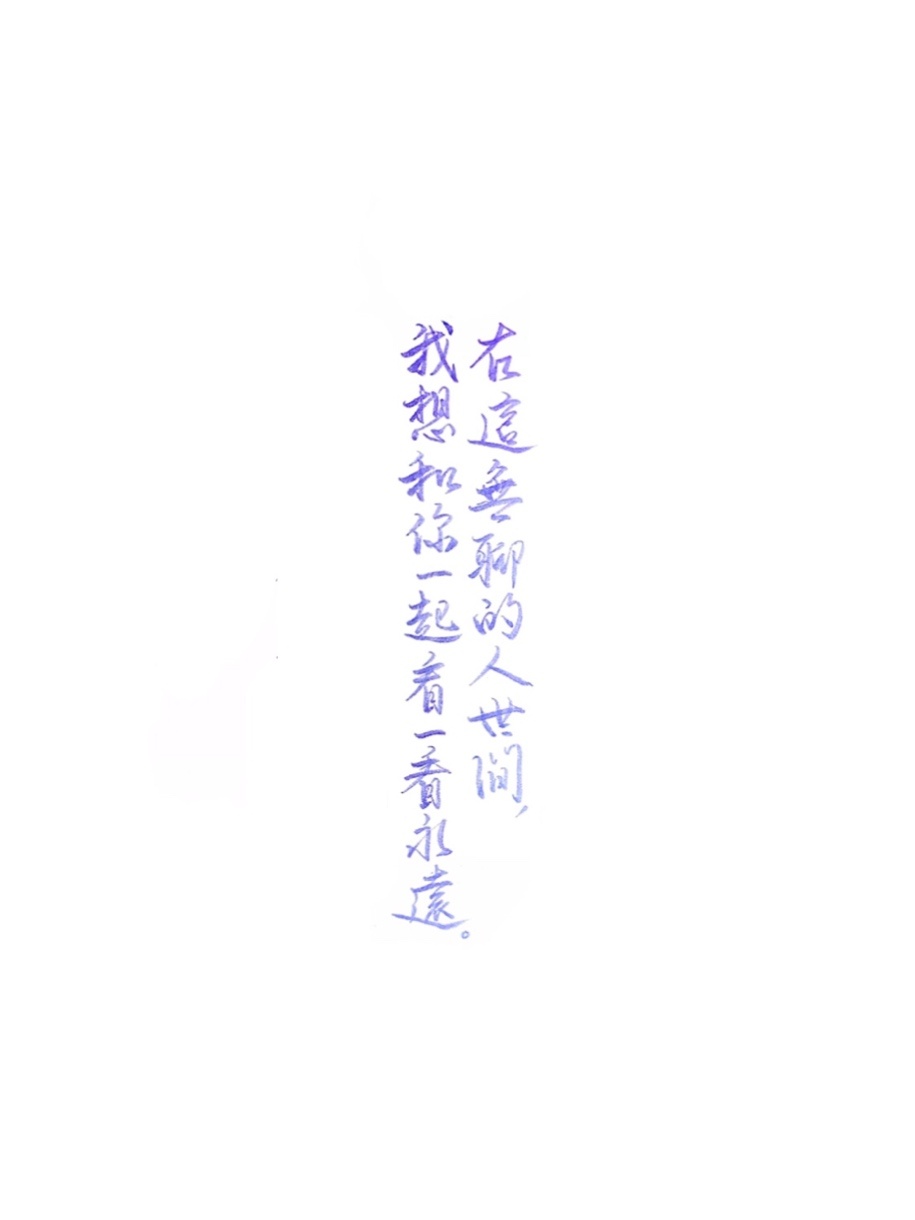 在這無聊的人世間，
我想和你一起看一看永遠。